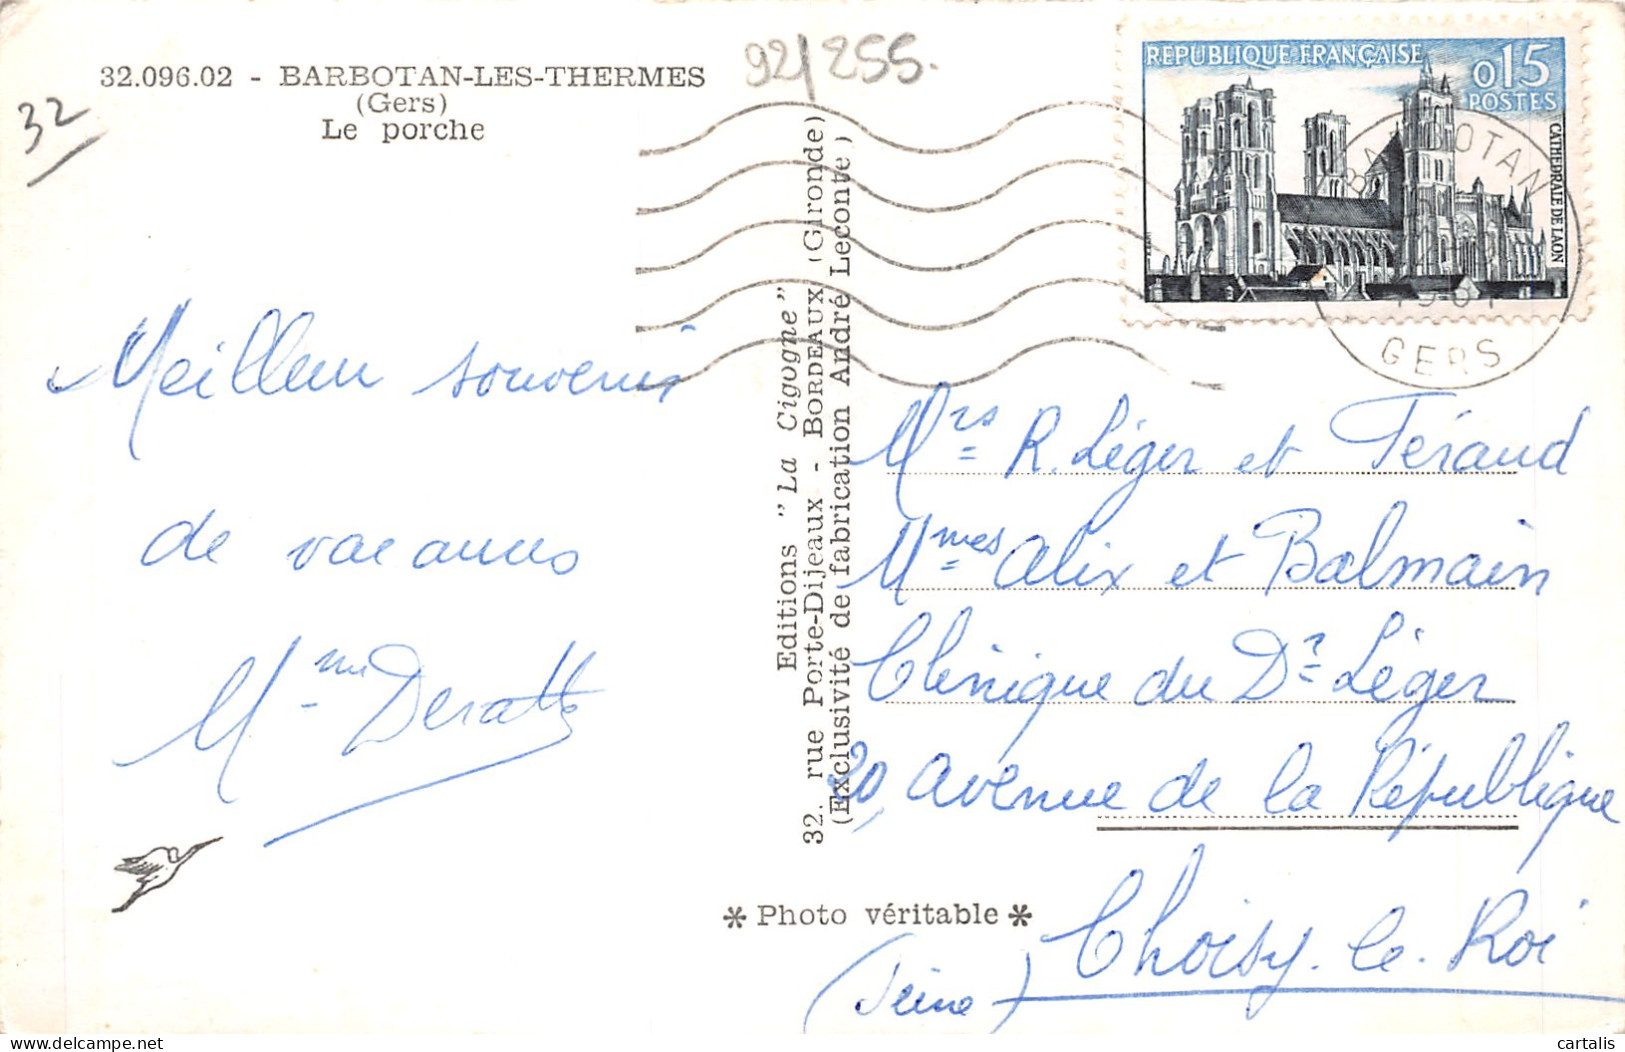 32.096.02 - BARBOTAN-LES-THERMES
(Gers)
Le porche
32
92/255.
REPUBLIQUE FRANÇAISE
0,15
POSTES
CATHEDRALE DE LAON
BARBOTAN
GERS
Meilleur souvenir
de vacances
Mme
Editions "La Cigogne"
32. rue Porte-Dijeaux - BORDEAUX (Gironde)
(Exclusivité de fabrication André Leconte)
Mrs R. Léger et Féraud
Mmes Alix et Balmain
Clinique du Dr Léger
20, avenue de la République
Choisy-le-Roi
(Seine)
* Photo véritable *
delcampe.net
cartalis